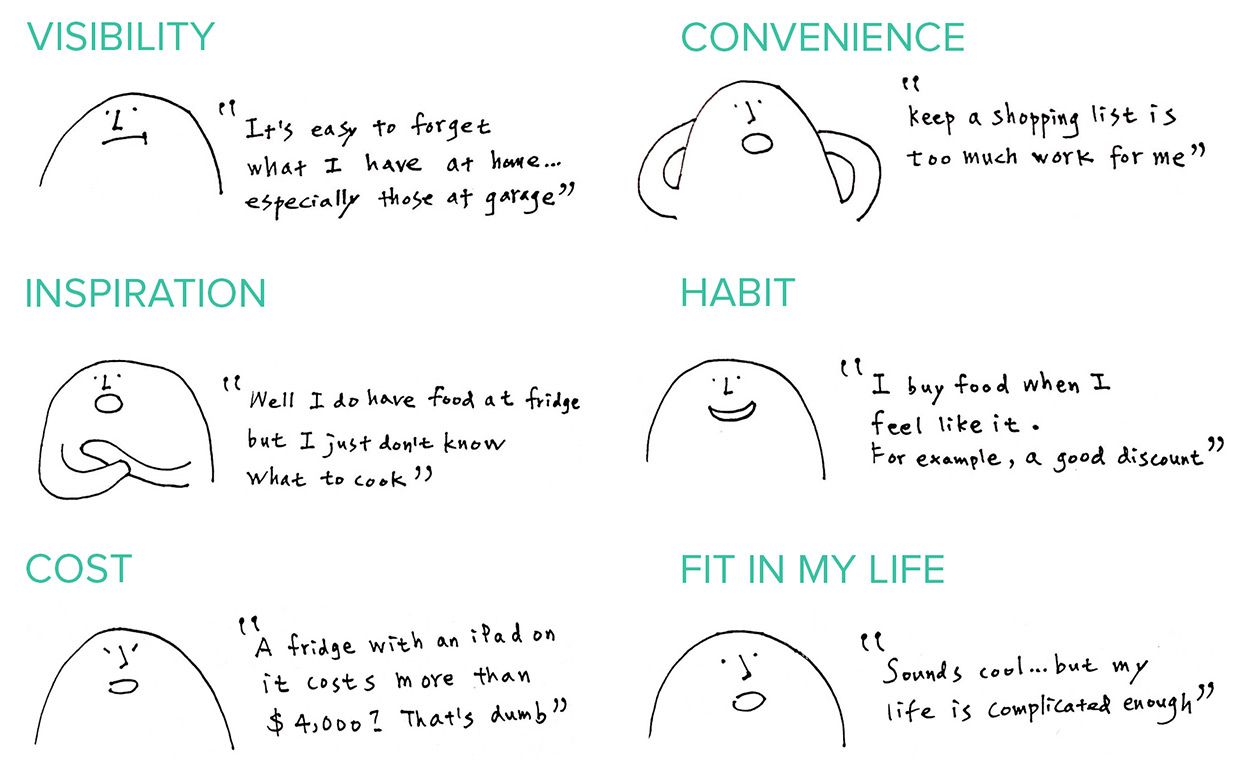 VISIBILITY
"It's easy to forget
what I have at home...
especially those at garage"
CONVENIENCE
"
keep a shopping list is
too much work for me"
INSPIRATION
"Well I do have food at fridge
but I just don't know
what to cook"
HABIT
"I buy food when I
feel like it.
For example, a good discount"
COST
"A fridge with an iPad on
it costs more than
$4,000? That's dumb"
FIT IN MY LIFE
"Sounds cool...but my
life is complicated enough"